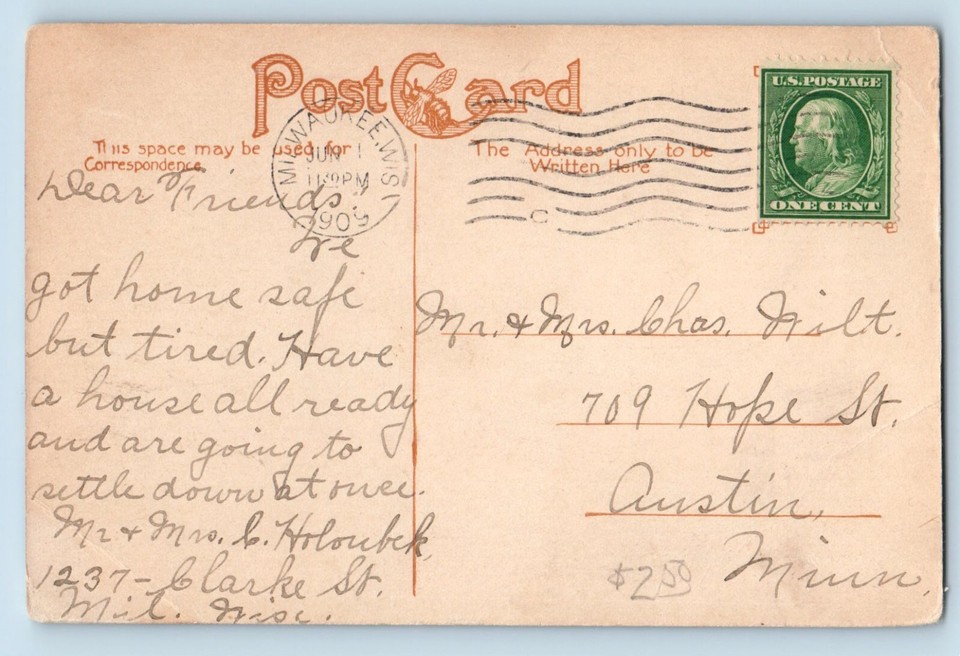 Post Card
This space may be used for
Correspondence.
The Address only to be
Written Here
MILWAUKEE, WIS.
JUN 1
PM
1909
C
U.S. POSTAGE
ONE CENT
Dear Friends,
We
got home safe
but tired. Have
a house all ready
and are going to
settle down at once.
Mr & Mrs. C. Holoubek,
1237 – Clarke St.
Mil. Wisc.
Mr. & Mrs. Chas. Wilt.
709 Hope St.
Austin,
Minn.
$2.50